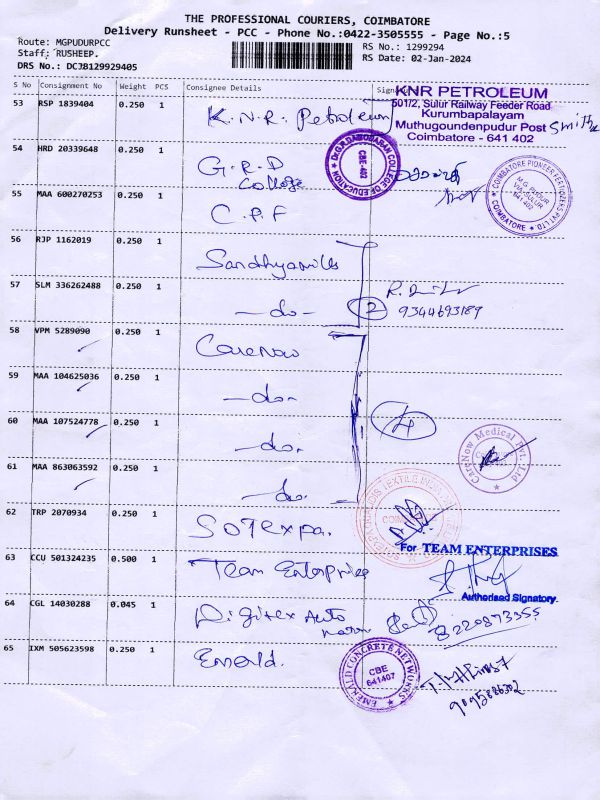 THE PROFESSIONAL COURIERS, COIMBATORE
Delivery Runsheet - PCC - Phone No.:0422-3505555 - Page No.:5
Route: MGPUDURPCC
Staff; RUSHEEP.
DRS No.: DCJB129929405
RS No.: 1299294
RS Date: 02-Jan-2024
S No Consignment No Weight PCS Consignee Details
53 RSP 1839404 0.250 1 K.N.R. Petroleum
KNR PETROLEUM
501/2, Sulur Railway Feeder Road
Kurumbapalayam
Muthugoundenpudur Post
Coimbatore - 641 402
54 HRD 20339648 0.250 1 G.R.D College
CBE-402
COLLEGE OF EDUCATION
55 MAA 600270253 0.250 1 C.P.F
COIMBATORE PIONEER FERTILIZERS PVT LTD
M.G. PUDUR
VIA-SULUR
641 402
COIMBATORE
56 RJP 1162019 0.250 1 Sandhyamills
57 SLM 336262488 0.250 1 -do-
2
9344693189
58 VPM 5289090 0.250 1 Carenow
59 MAA 104625036 0.250 1 -do-
60 MAA 107524778 0.250 1 -do-
4
61 MAA 863063592 0.250 1 -do-
CareNow Medical Pvt. Ltd
62 TRP 2070934 0.250 1 Sotexpa.
63 CCU 501324235 0.500 1 Team Enterprise
For TEAM ENTERPRISES
Authorised Signatory.
64 CGL 14030288 0.045 1 Digitex Auto
8220873555
65 IXM 505623598 0.250 1 Emerald.
EMERALD CONCRETE NETWORKS
CBE
641407